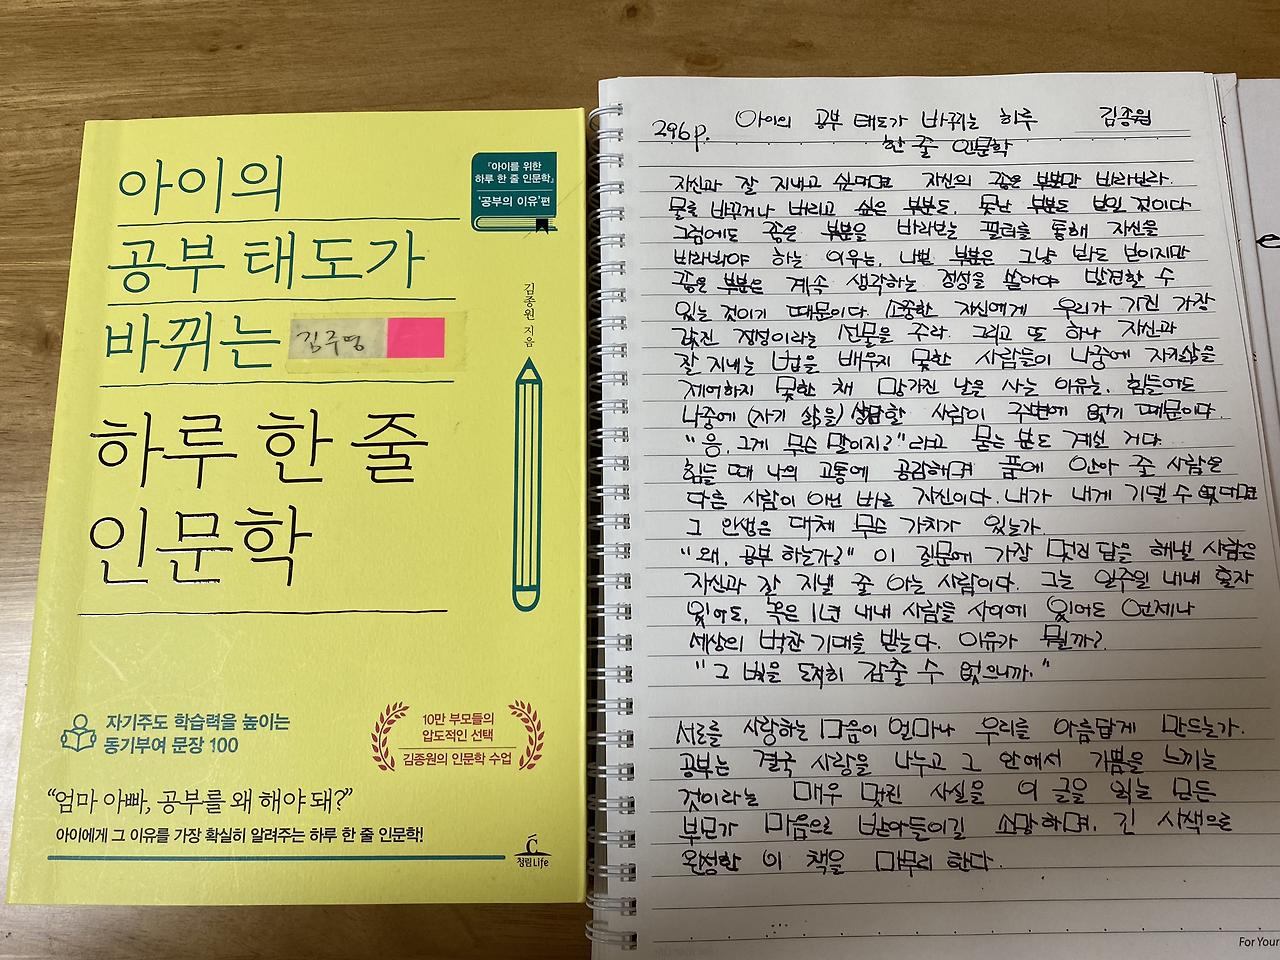 아이의
공부 태도가
바뀌는
하루 한 줄
인문학
『아이를 위한
하루 한 줄 인문학』
'공부의 이유'편
김종원 지음
김주영
자기주도 학습력을 높이는
동기부여 문장 100
10만 부모들의
압도적인 선택
김종원의 인문학 수업
"엄마 아빠, 공부를 왜 해야 돼?"
아이에게 그 이유를 가장 확실히 알려주는 하루 한 줄 인문학!
청림Life
296p. 아이의 공부 태도가 바뀌는 하루 김종원
한 줄 인문학
자신과 잘 지내고 싶다면 자신의 좋은 부분만 바라보라.
물론 바꾸거나 버리고 싶은 부분도, 못난 부분도 보일 것이다
그럼에도 좋은 부분을 바라보는 필터를 통해 자신을
바라봐야 하는 이유는, 나쁜 부분은 그냥 봐도 보이지만
좋은 부분은 계속 생각하는 정성을 쏟아야 발견할 수
있는 것이기 때문이다. 소중한 자신에게 우리가 가진 가장
값진 정성이라는 선물을 주라. 그리고 또 하나 자신과
잘 지내는 법을 배우지 못한 사람들이 나중에 자기삶을
제어하지 못한 채 망가진 날을 사는 이유는, 힘들어도
나중에 (자기 삶을) 상담할 사람이 주변에 없기 때문이다.
"응, 그게 무슨 말이지?"라고 묻는 분도 계실 거다
힘들 때 나의 고통에 공감하며 품에 안아 줄 사람은
다른 사람이 아닌 바로 자신이다. 내가 내게 기댈 수 없다면
그 인생은 대체 무슨 가치가 있는가.
"왜, 공부 하는가?" 이 질문에 가장 멋진 답을 해낼 사람은
자신과 잘 지낼 줄 아는 사람이다. 그는 일주일 내내 혼자
있어도, 혹은 1년 내내 사람들 사이에 있어도 언제나
세상의 벅찬 기대를 받는다. 이유가 뭘까?
"그 빛을 도저히 감출 수 없으니까."
서로를 사랑하는 마음이 얼마나 우리를 아름답게 만드는가.
공부는 결국 사랑을 나누고 그 안에서 기쁨을 느끼는
것이라는 매우 멋진 사실을 이 글을 읽는 모든
부모가 마음으로 받아들이길 소망하며, 긴 사색으로
완성한 이 책을 마무리 한다.
For Your